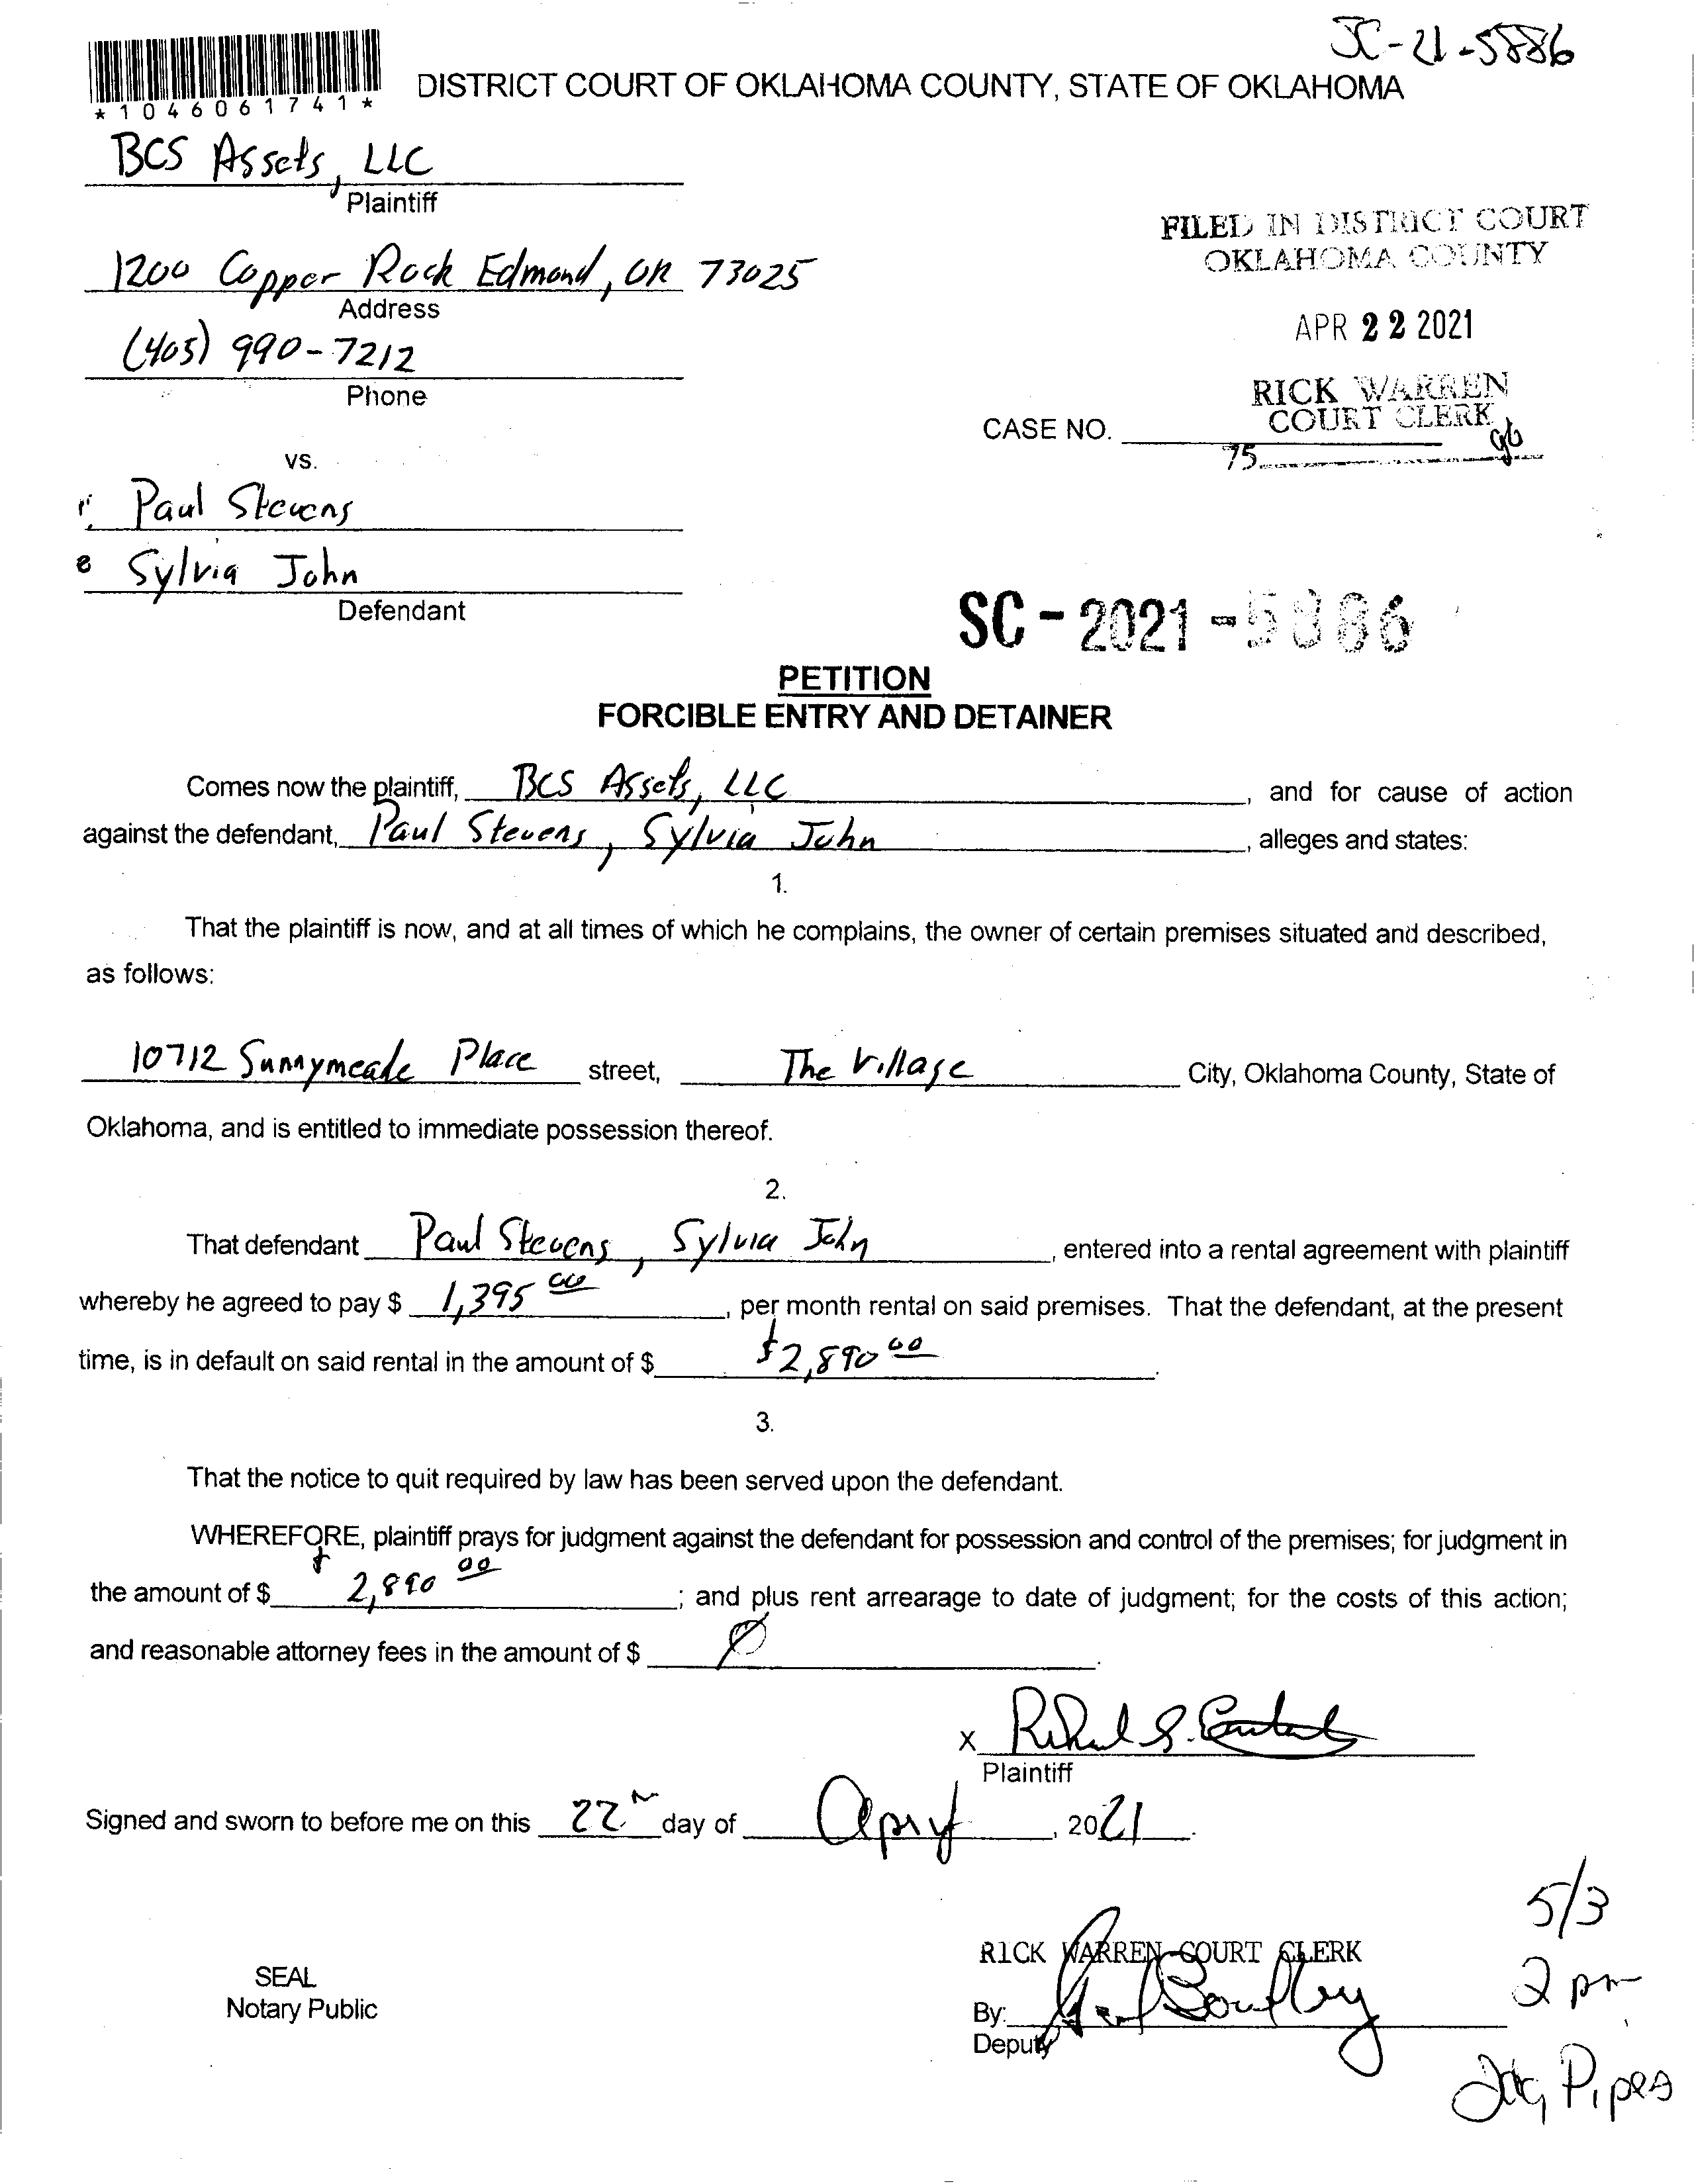 SC-21-5886
*1046061741*
DISTRICT COURT OF OKLAHOMA COUNTY, STATE OF OKLAHOMA
BCS Assets, LLC
Plaintiff
1200 Copper Rock Edmond, OK 73025
Address
(405) 990-7212
Phone
FILED IN DISTRICT COURT
OKLAHOMA COUNTY
APR 22 2021
RICK WARREN
COURT CLERK
CASE NO.
75
vs.
Paul Stevens
Sylvia John
Defendant
SC-2021-5886
PETITION
FORCIBLE ENTRY AND DETAINER
Comes now the plaintiff, BCS Assets, LLC, and for cause of action
against the defendant, Paul Stevens, Sylvia John, alleges and states:
1.
That the plaintiff is now, and at all times of which he complains, the owner of certain premises situated and described,
as follows:
10712 Sunnymeade Place street, The Village City, Oklahoma County, State of
Oklahoma, and is entitled to immediate possession thereof.
2.
That defendant Paul Stevens, Sylvia John, entered into a rental agreement with plaintiff
whereby he agreed to pay $ 1,395 00, per month rental on said premises. That the defendant, at the present
time, is in default on said rental in the amount of $ $2,890 00.
3.
That the notice to quit required by law has been served upon the defendant.
WHEREFORE, plaintiff prays for judgment against the defendant for possession and control of the premises; for judgment in
the amount of $ 2,890 00; and plus rent arrearage to date of judgment; for the costs of this action;
and reasonable attorney fees in the amount of $ Ø.
X
Plaintiff
Signed and sworn to before me on this 22 day of April, 2021.
5/3
2 pm
RICK WARREN COURT CLERK
SEAL
Notary Public
By:
Deputy
Pipes